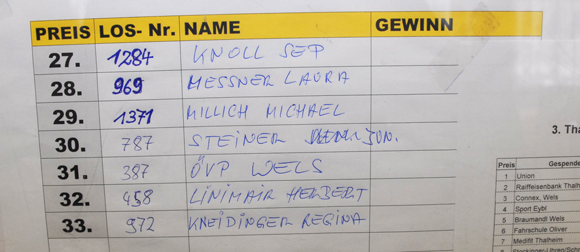 PREIS LOS- Nr. NAME GEWINN
27. 1284 KNOLL SEP
28. 969 MESSNER LAURA
29. 1371 MILLICH MICHAEL
30. 787 STEINER JUN.
31. 387 ÖVP WELS
32. 458 LINIMAIR HERBERT
33. 972 KNEIDINGER REGINA
3. Tha
Preis Gespende
1 Union
2 Raiffeisenbank Thalh
3 Connex, Wels
4 Sport Eybl
5 Braumandl Wels
6 Fahrschule Oliver
7 Medifit Thalheim